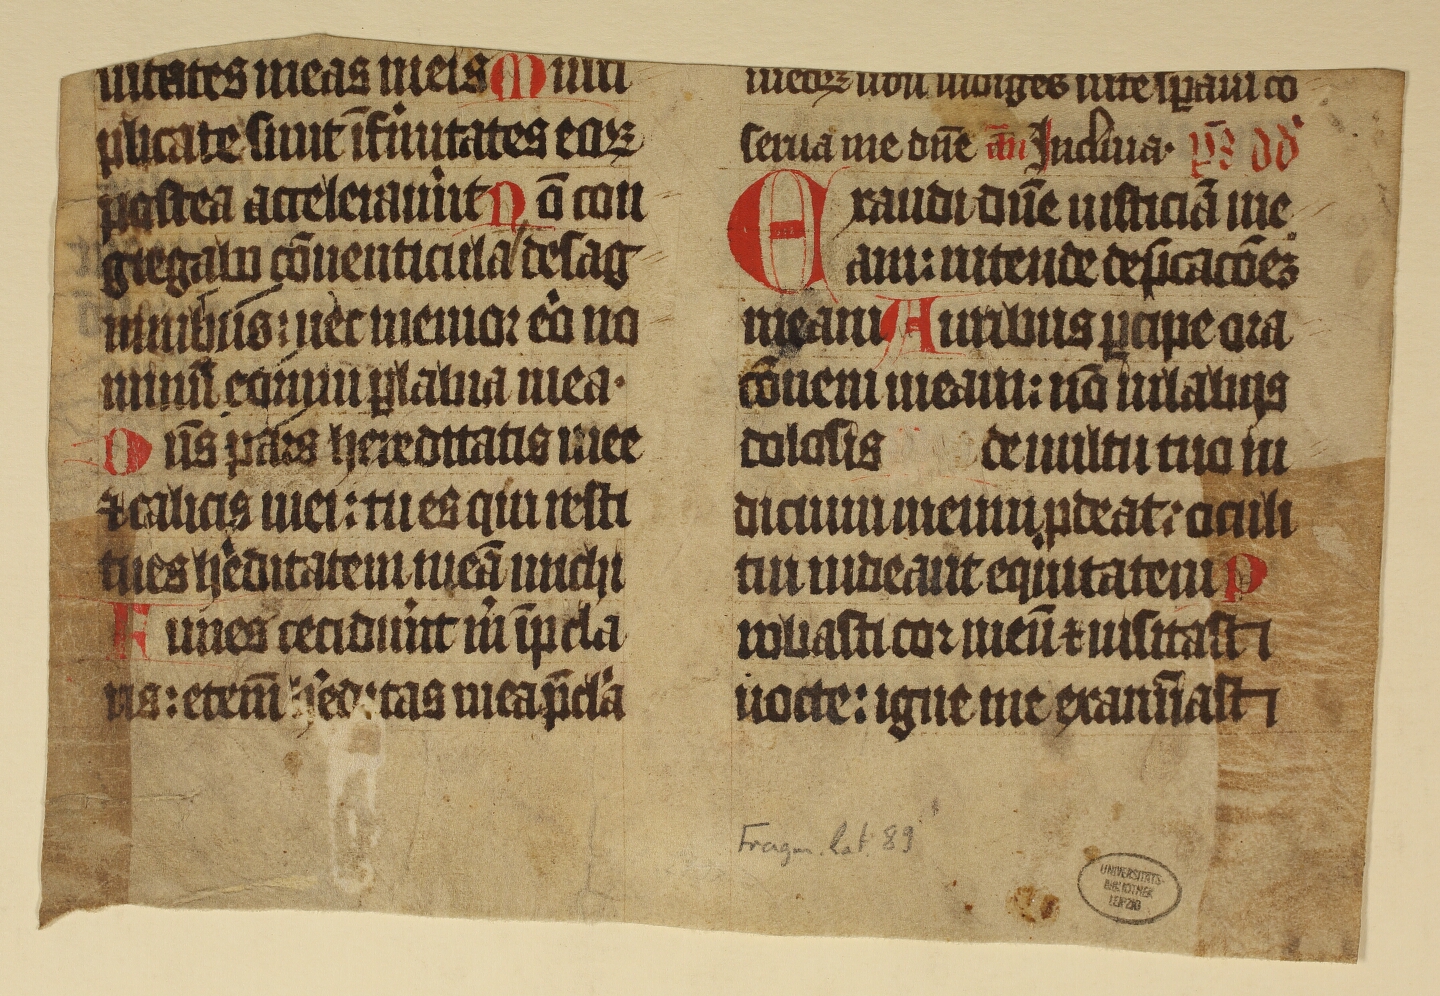 uitates meas meis Multi
plicate sunt īfirmitates eoꝝ
postea accelerauerūt Nō con
gregabo cōuenticula desāg
minibus: nec memor ero no
minū eorum ꝑ labia mea·
Dn̄s pars hereditatis mee
⁊ calicis mei: tu es qui resti
tues hēditatem meā michi
Funes cecidert m̄ ī pcla
ris: etem̄ hēditas mea p̄cla
meoꝝ non indiges in te ꝑaui co
serua me dn̄e an̄ Inclina· ps̄ dd
Exaudi dn̄e iusticiā me
am: intende dep̄cacōeꝫ
meam Auribus ꝑcipe ora
cōnem meam: nō in labijs
dolosis de uultu tuo iu
dicium meum ꝓdeat: oculi
tui uideant equitatem P
robasti cor meū ⁊ uisitasti
nocte: igne me examīasti
Fragm. lat. 89
UNIVERSITÄTS-
BIBLIOTHEK
LEIPZIG